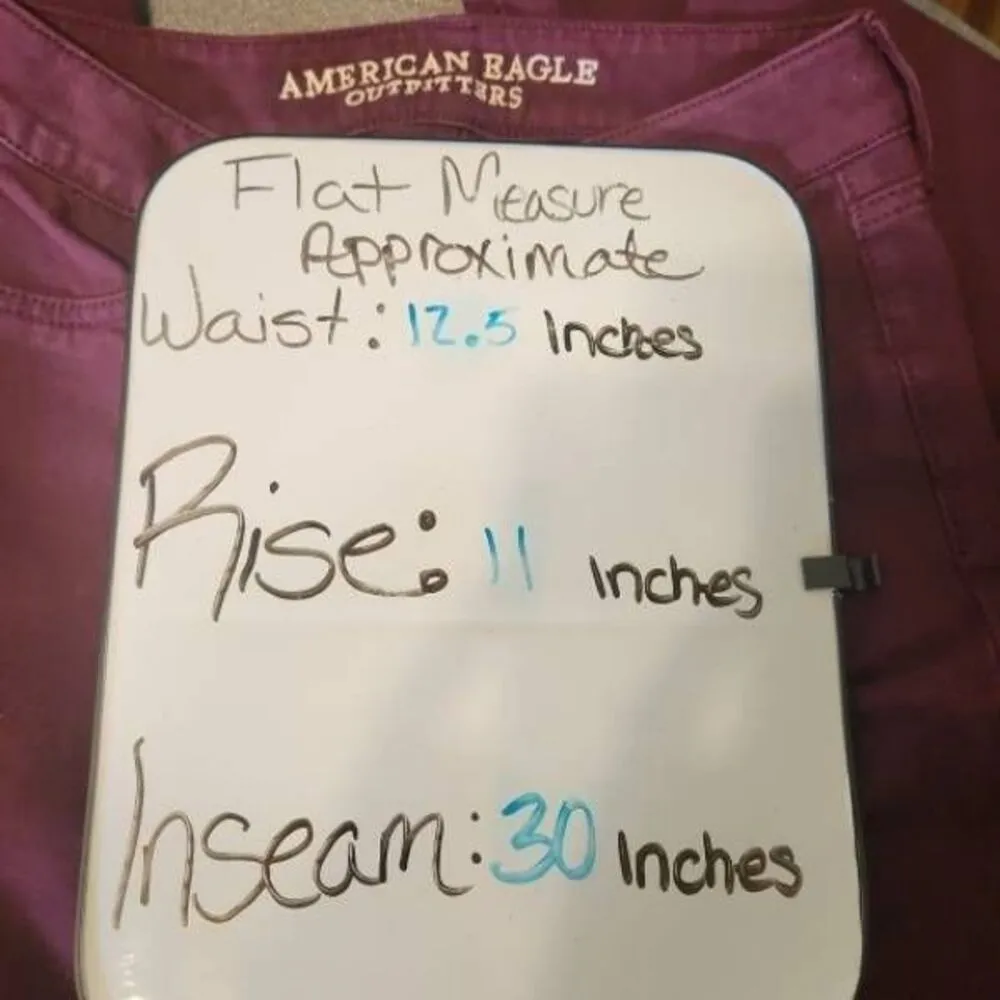 AMERICAN EAGLE
OUTFITTERS
Flat Measure
Approximate
Waist: 12.5 Inches
Rise: 11 Inches
Inseam: 30 Inches